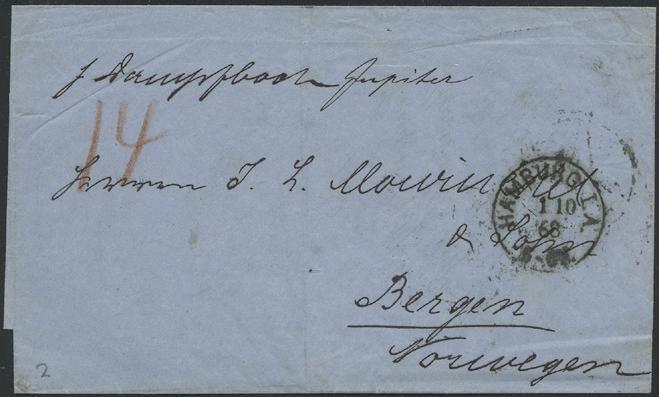 p Dampfboot Jupiter
14
Herren J. L. Mowinckel
& Sohn
Bergen
Norwegen
HAMBURG I.A.
1 10
68
2